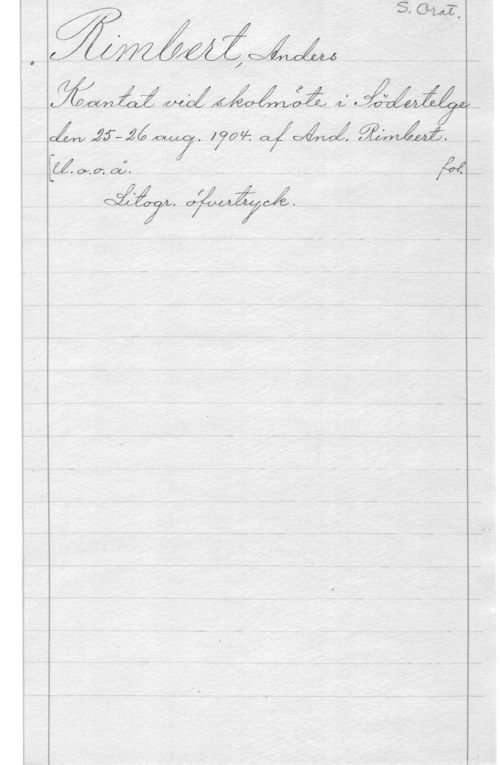 S. Orat.
Rimbert, Anders
Kantat vid skolmöte i Södertelge
den 25-26 aug. 1904. af And. Rimbert.
[U. o. o. å. fol.
Litogr. öfvertryck.